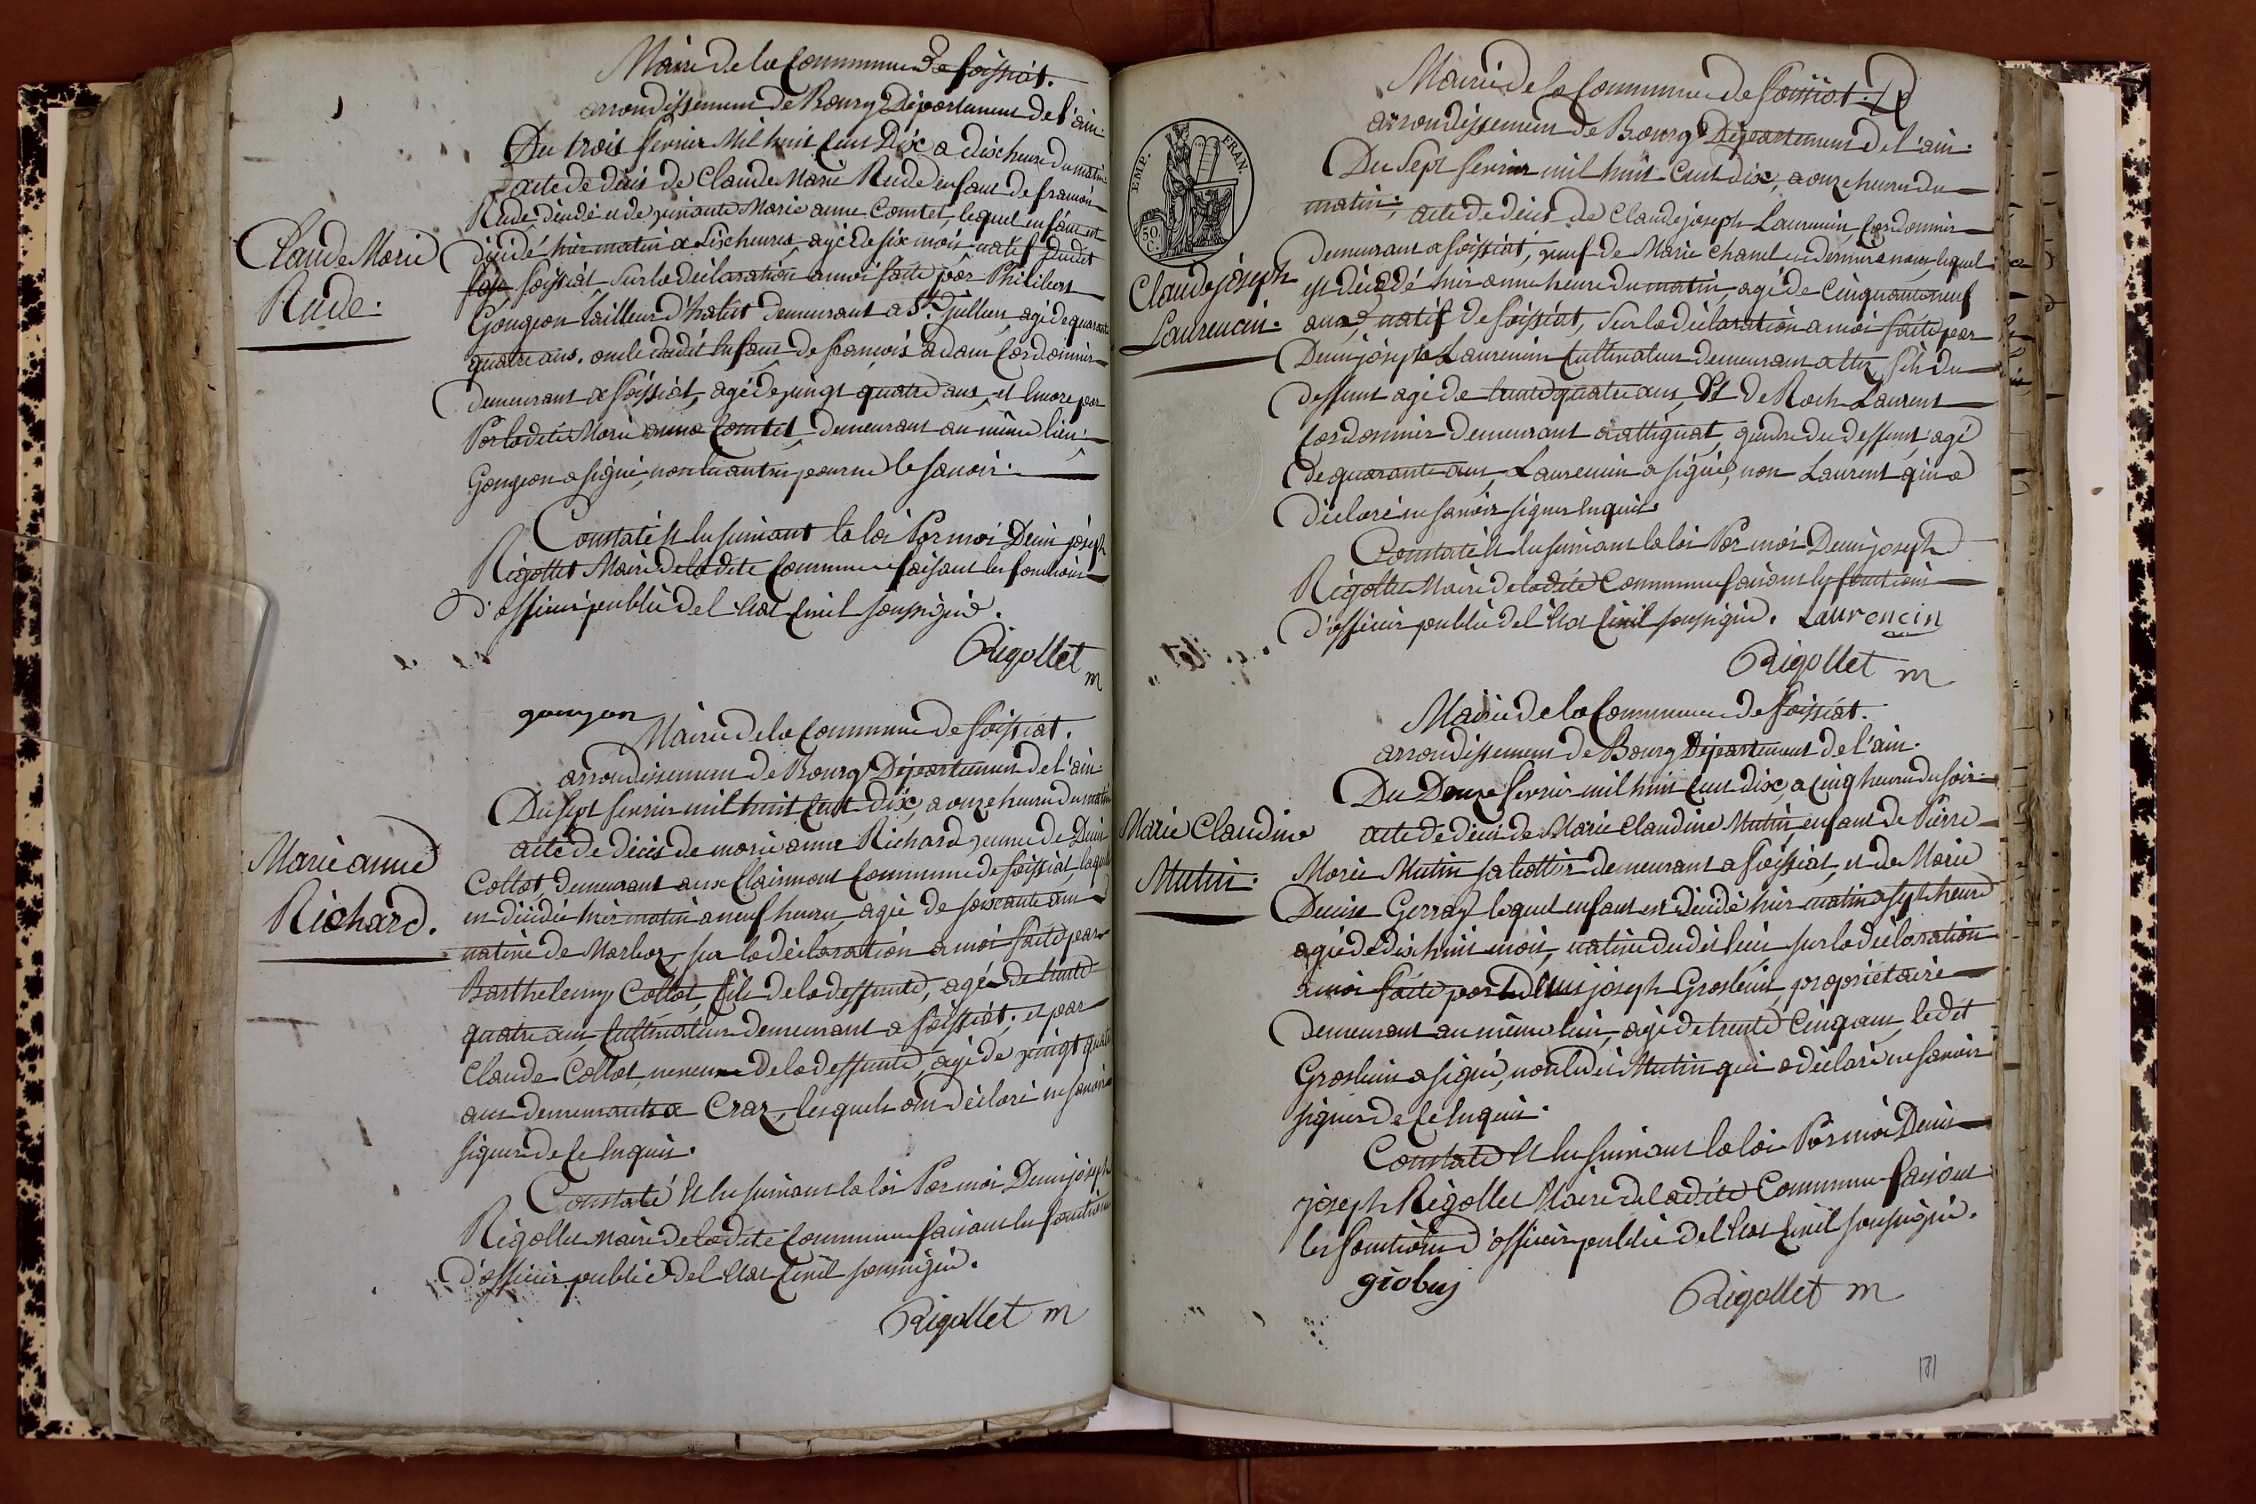 Mairie de la Commune de foissiat.
arrondissement de Bourg Département de l'ain.
Du trois fevrier Mil huit Cent Dix a dix heure du matin
acte de décés de Claude Marie Rude enfant de francois
Rude, décédé et de vivante Marie anne Comtet, lequel enfant est
décédé hier matin a six heures, agé de six mois natif dudit
foissiat, sur la déclaration a moi faite par Philibert
Gongeon tailleur d'habits demeurant a St. Jullien, agé de quarante
quatre ans, oncle dudit enfant de francois adam Cordonnier
demeurant a foissiat, agé de vingt quatre ans, et encore par
Par ladite Marie anne Comtet demeurant au même lieu.
Gongeon a signé, non les autres pour ne le savoir.
Constaté et lu suivant la loi Par moi Denis joseph
Rigollet Maire de ladite Commune faisant les fonctions
d'officier public de l'état Civil soussigné.
Rigollet
m
gougon
Claude Marie
Rude.
Mairie de la Commune de foissiat.
arrondissement de Bourg Département de l'ain.
Du sept fevrier mil huit Cent dix, a onze heure du matin
acte de décès de marie anne Richard veuve de Denis
Collot, demeurant aux Clairmont Commune de foissiat laquelle
est décédée hier matin a neuf heures, agée de soixante ans
native de Marboz, sur la déclaration a moi faite par
Barthelemy Collot, fils de la deffunte, agé de trente
quatre ans Cultivateur demeurant a foissiat, et par
Claude Collot, neveu de la deffunte, agé de vingt quatre
ans demeurants a Craz, lesquels ont déclaré ne savoir
signer de ce enquis.
Constaté et lu suivant la loi Par moi Denis joseph
Rigollet maire de ladite Commune faisant les fonctions
d'officier public de l'état Civil soussigné.
Rigollet m
Marie anne
Richard.
Mairie de la Commune de foissiat.
arrondissement de Bourg Département de l'ain.
Du Sept fevrier mil huit Cent dix, a onze heure du
matin, acte de décès de Claude joseph Laurencin Cordonnier
demeurant a foissiat, veuf de Marie Chanel en derniere noce, lequel
est décédé hier a une heure du matin, agé de Cinquante neuf
ans, natif de foissiat, sur la déclaration a moi faite par
Denis joseph Laurencin Cultivateur demeurant a fils du
deffunt agé de trente quatre ans, Et de Roch Laurent
Cordonnier demeurant a attignat, gendre du deffunt agé
de quarante ans, Laurencin a signé, non Laurent qui a
déclaré ne savoir signer enquis.
Constaté et lu suivant la loi Par moi Denis joseph
Rigollet Maire de ladite Commune faisant les fonctions
d'officier public de l'état Civil soussigné. Laurencin
Rigollet m
EMP. FRAN.
50. C.
Claude joseph
Laurencin.
Mairie de la Commune de foissiat.
arrondissement de Bourg Département de l'ain.
Du Douze fevrier mil huit Cent dix, a Cinq heure du soir.
acte de décès de Marie Claudine Mutin enfant de Pierre
Marie Mutin sabottier demeurant a foissiat, et de Marie
Denise Gerray lequel enfant est décédé hier matin a sept heure
agée de dix huit mois, native dudit lieu, sur la déclaration
a moi faite par Denis joseph Grosbuis, propriétaire
demeurant au même lieu, agé de trente Cinq ans, ledit
Grosbuis a signé, non ledit Mutin qui a déclaré ne savoir
signer de ce enquis.
Constaté et lu suivant la loi Par moi Denis
joseph Rigollet Maire de ladite Commune faisant
les fonctions d'officier public de l'état Civil soussigné.
Rigollet m
Marie Claudine
Mutin.
181